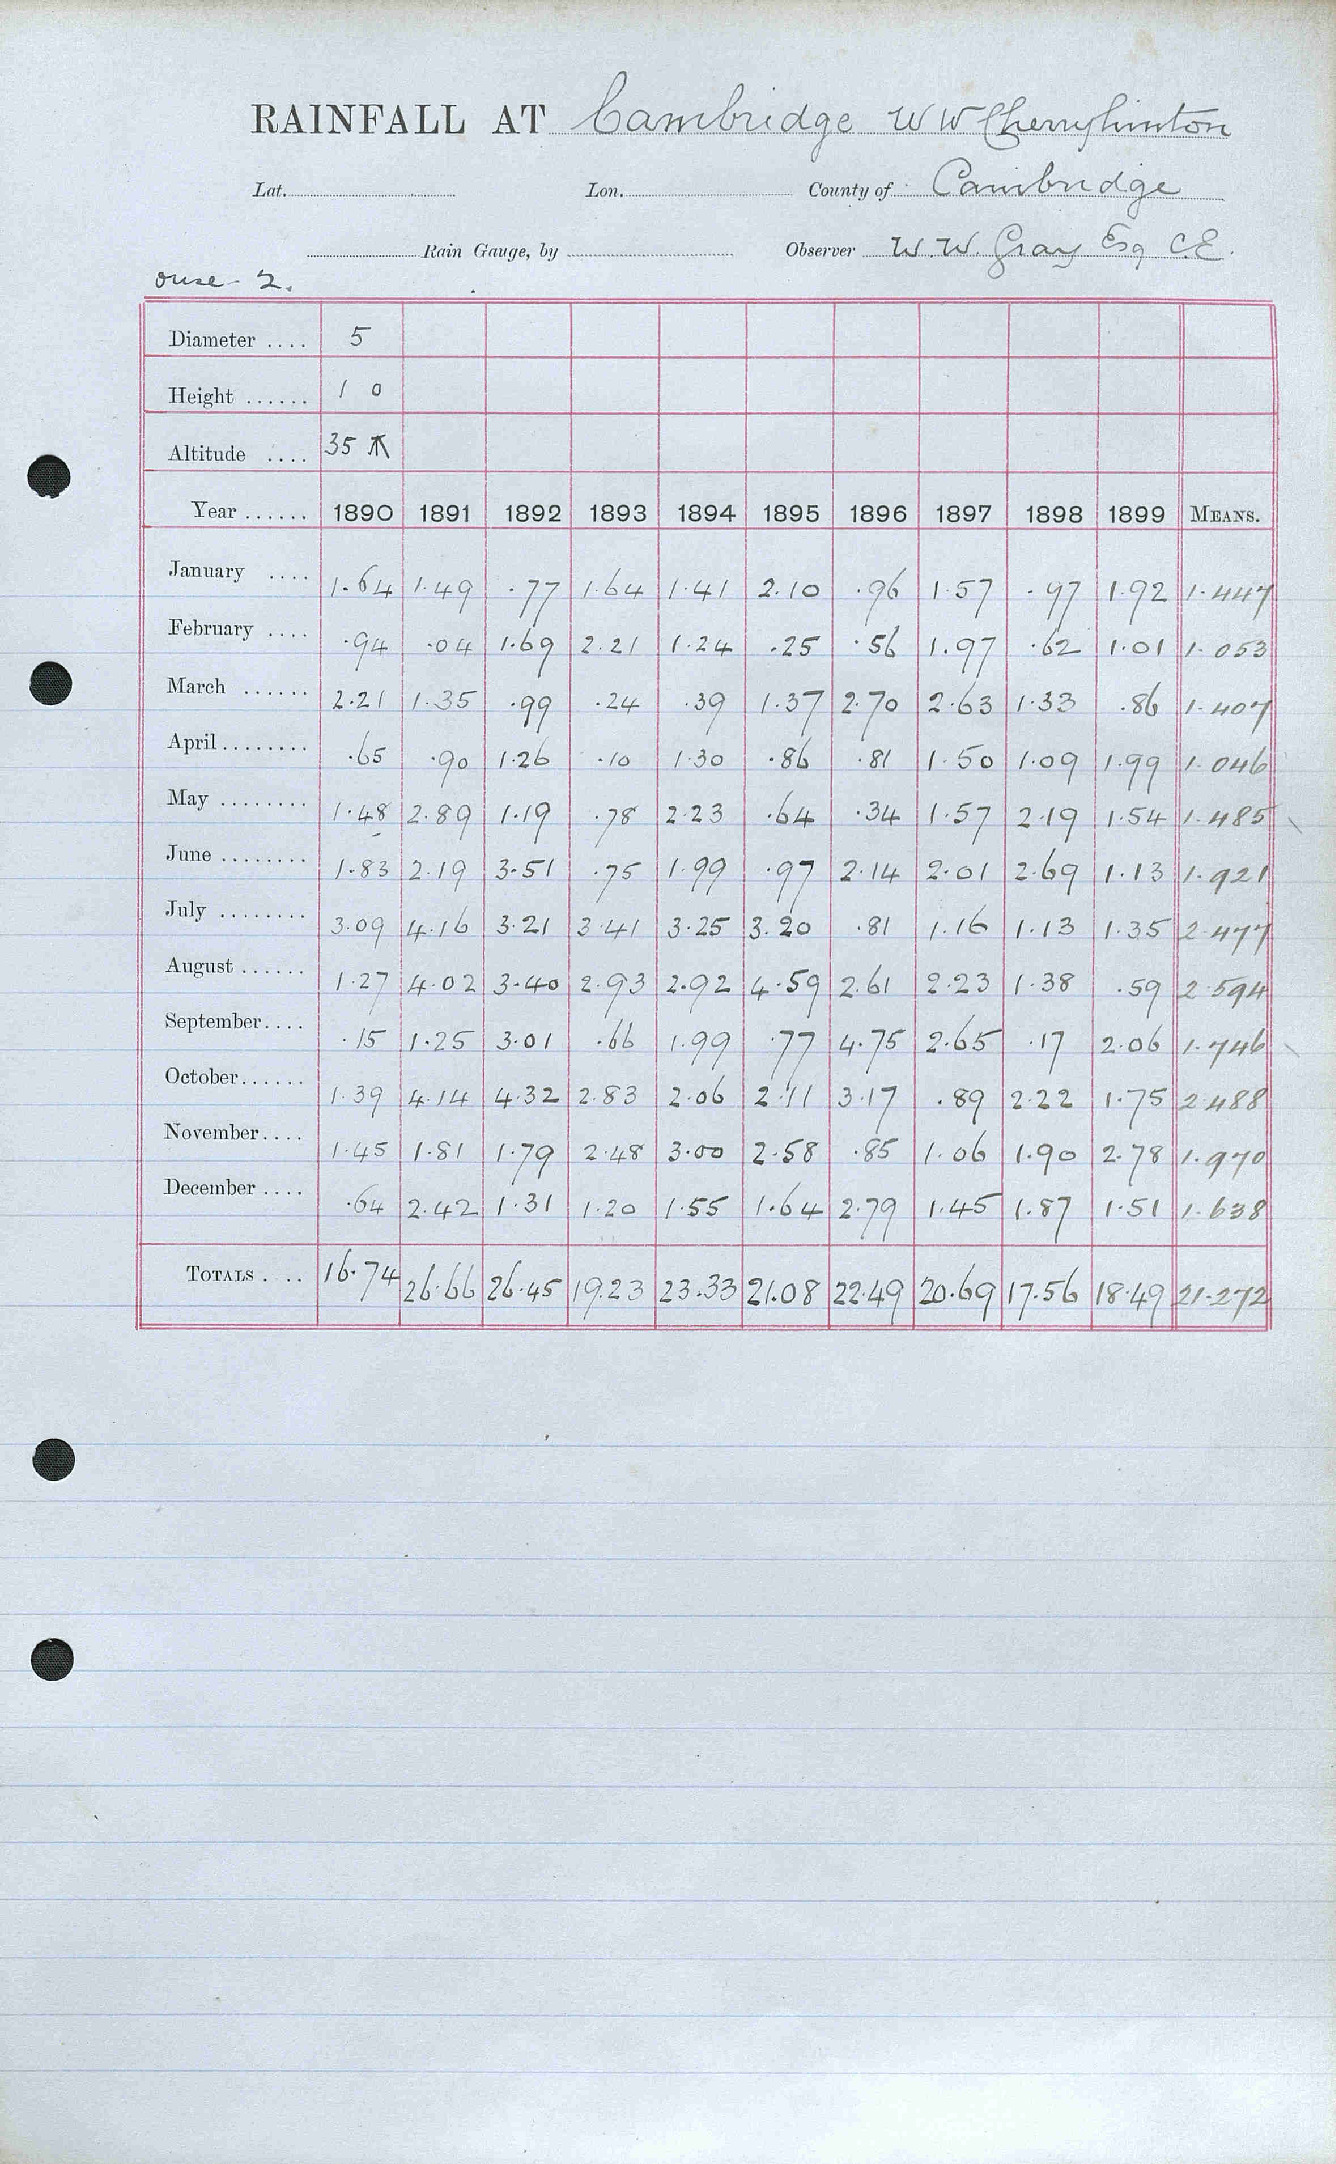 RAINFALL AT Cambridge W W Cherryhinton
Lat. Lon. County of Cambridge
Rain Gauge, by Observer W. W. Gray Esq C.E.
Ouse - 2.
Diameter .... 5
Height ...... 1 0
Altitude .... 35
Year ...... 1890 1891 1892 1893 1894 1895 1896 1897 1898 1899 MEANS.
January .... 1.64 1.49 .77 1.64 1.41 2.10 .96 1.57 .97 1.92 1.447
February .... .94 .04 1.69 2.21 1.24 .25 .56 1.97 .62 1.01 1.053
March ...... 2.21 1.35 .99 .24 .39 1.37 2.70 2.63 1.33 .86 1.407
April ........ .65 .90 1.26 .10 1.30 .86 .81 1.50 1.09 1.99 1.046
May ........ 1.48 2.89 1.19 .78 2.23 .64 .34 1.57 2.19 1.54 1.485
June ........ 1.83 2.19 3.51 .75 1.99 .97 2.14 2.01 2.69 1.13 1.921
July ........ 3.09 4.16 3.21 3.41 3.25 3.20 .81 1.16 1.13 1.35 2.477
August ...... 1.27 4.02 3.40 2.93 2.92 4.59 2.61 2.23 1.38 .59 2.594
September .... .15 1.25 3.01 .66 1.99 .77 4.75 2.65 .17 2.06 1.746
October ...... 1.39 4.14 4.32 2.83 2.06 2.11 3.17 .89 2.22 1.75 2.488
November .... 1.45 1.81 1.79 2.48 3.00 2.58 .85 1.06 1.90 2.78 1.970
December .... .64 2.42 1.31 1.20 1.55 1.64 2.79 1.45 1.87 1.51 1.638
TOTALS .... 16.74 26.66 26.45 19.23 23.33 21.08 22.49 20.69 17.56 18.49 21.272